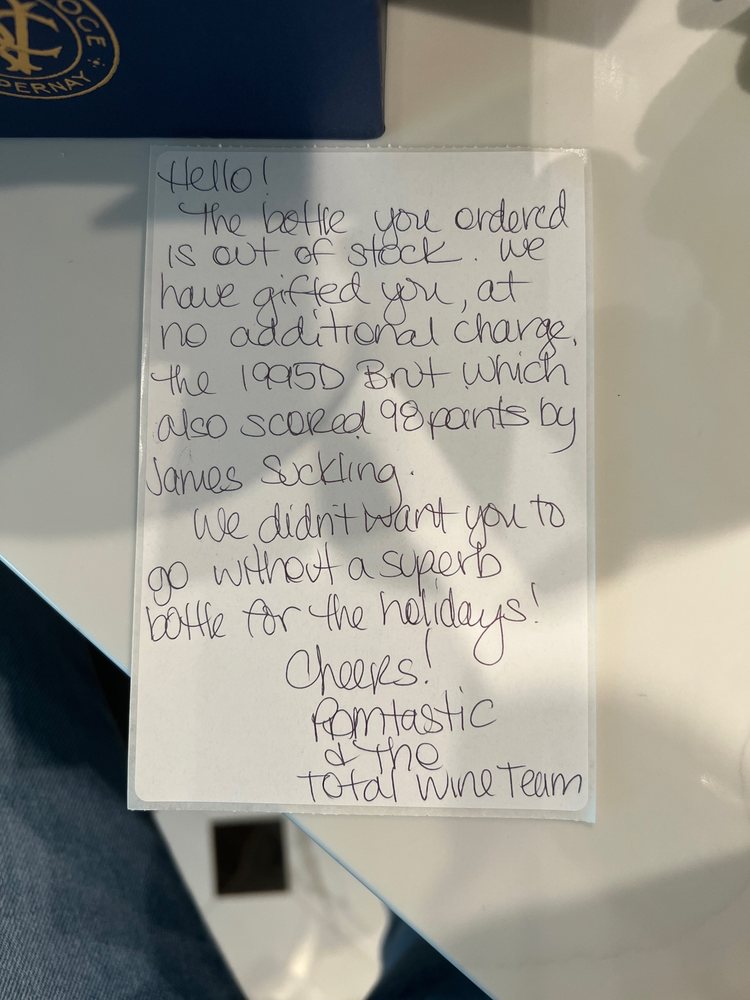 OGE
PERNAY
Hello!
The bottle you ordered
is out of stock. We
have gifted you, at
no additional charge,
the 1995D Brut which
also scored 98 points by
James Suckling.
We didn't want you to
go without a superb
bottle for the holidays!
Cheers!
Pomtastic
& The
Total Wine Team